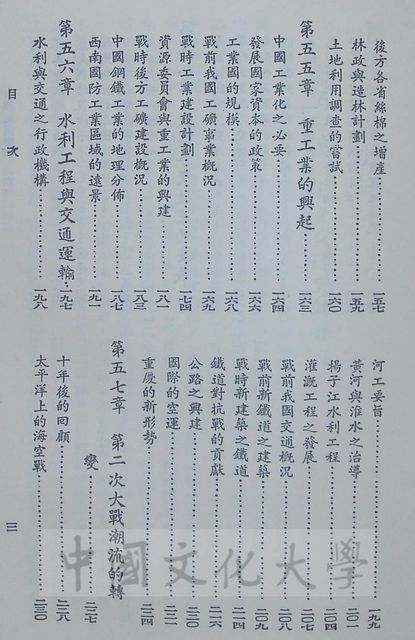 後方各省絲棉之增產……一五七
林政與造林計劃……一五九
土地利用調查的嘗試……一六〇
第五五章　重工業的興起……一六三
中國工業化之必要……一六四
發展國家資本的政策……一六六
工業國的規模……一六八
戰前我國工礦事業概況……一六九
戰時工業建設計劃……一七四
資源委員會與重工業的興建……一八一
戰時後方工礦建設概況……一八三
中國鋼鐵工業的地理分佈……一八七
西南國防工業區域的遠景……一九一
第五六章　水利工程與交通運輸……一九七
水利與交通之行政機構……一九八
目　次
河工要旨……一九九
黃河與淮水之治導……二〇一
揚子江水利工程……二〇四
灌溉工程之發展……二〇七
戰前我國交通概況……二〇八
戰前新鐵道之建築……二〇九
戰時新建築之鐵道……二一四
鐵道對抗戰的貢獻……二一六
公路之興建……二二〇
國際的空運……二二二
重慶的新形勢……二二四
第五七章　第二次大戰潮流的轉
變……二二七
十年後的回顧……二二八
太平洋上的海空戰……二三〇
三
中國文化大學